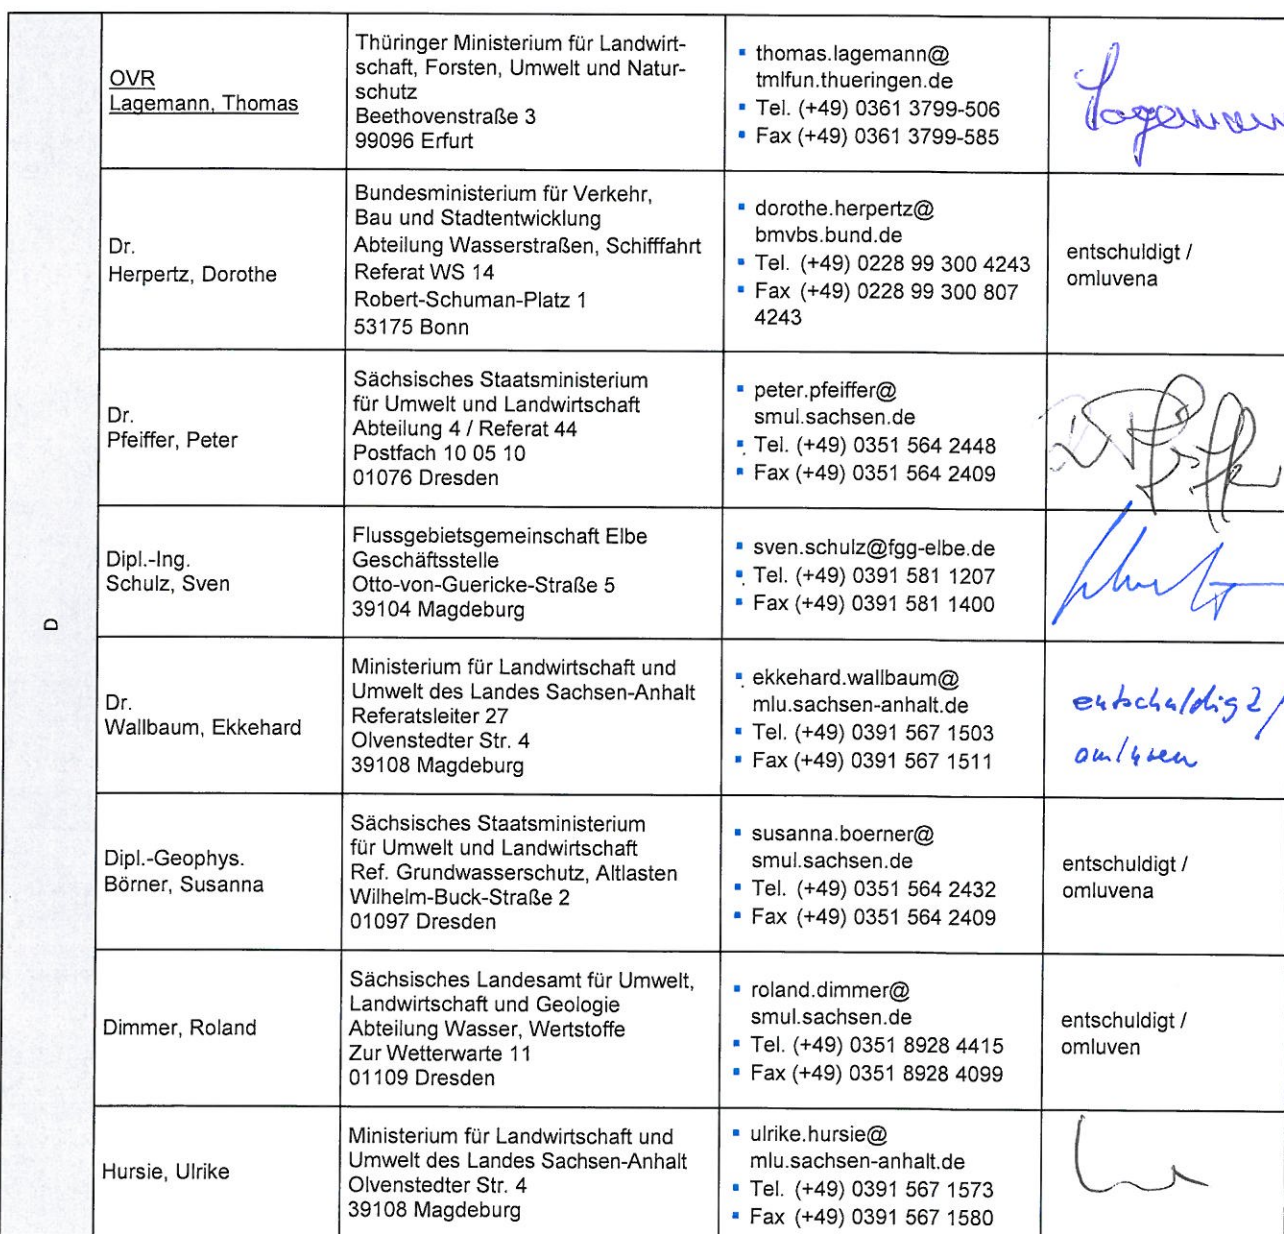 D
OVR
Lagemann, Thomas
Thüringer Ministerium für Landwirt-
schaft, Forsten, Umwelt und Natur-
schutz
Beethovenstraße 3
99096 Erfurt
▪ thomas.lagemann@
tmlfun.thueringen.de
▪ Tel. (+49) 0361 3799-506
▪ Fax (+49) 0361 3799-585
Lagemann
Dr.
Herpertz, Dorothe
Bundesministerium für Verkehr,
Bau und Stadtentwicklung
Abteilung Wasserstraßen, Schifffahrt
Referat WS 14
Robert-Schuman-Platz 1
53175 Bonn
▪ dorothe.herpertz@
bmvbs.bund.de
▪ Tel. (+49) 0228 99 300 4243
▪ Fax (+49) 0228 99 300 807
4243
entschuldigt /
omluvena
Dr.
Pfeiffer, Peter
Sächsisches Staatsministerium
für Umwelt und Landwirtschaft
Abteilung 4 / Referat 44
Postfach 10 05 10
01076 Dresden
▪ peter.pfeiffer@
smul.sachsen.de
▪ Tel. (+49) 0351 564 2448
▪ Fax (+49) 0351 564 2409
Dipl.-Ing.
Schulz, Sven
Flussgebietsgemeinschaft Elbe
Geschäftsstelle
Otto-von-Guericke-Straße 5
39104 Magdeburg
▪ sven.schulz@fgg-elbe.de
▪ Tel. (+49) 0391 581 1207
▪ Fax (+49) 0391 581 1400
Dr.
Wallbaum, Ekkehard
Ministerium für Landwirtschaft und
Umwelt des Landes Sachsen-Anhalt
Referatsleiter 27
Olvenstedter Str. 4
39108 Magdeburg
▪ ekkehard.wallbaum@
mlu.sachsen-anhalt.de
▪ Tel. (+49) 0391 567 1503
▪ Fax (+49) 0391 567 1511
entschuldigt /
omluven
Dipl.-Geophys.
Börner, Susanna
Sächsisches Staatsministerium
für Umwelt und Landwirtschaft
Ref. Grundwasserschutz, Altlasten
Wilhelm-Buck-Straße 2
01097 Dresden
▪ susanna.boerner@
smul.sachsen.de
▪ Tel. (+49) 0351 564 2432
▪ Fax (+49) 0351 564 2409
entschuldigt /
omluvena
Dimmer, Roland
Sächsisches Landesamt für Umwelt,
Landwirtschaft und Geologie
Abteilung Wasser, Wertstoffe
Zur Wetterwarte 11
01109 Dresden
▪ roland.dimmer@
smul.sachsen.de
▪ Tel. (+49) 0351 8928 4415
▪ Fax (+49) 0351 8928 4099
entschuldigt /
omluven
Hursie, Ulrike
Ministerium für Landwirtschaft und
Umwelt des Landes Sachsen-Anhalt
Olvenstedter Str. 4
39108 Magdeburg
▪ ulrike.hursie@
mlu.sachsen-anhalt.de
▪ Tel. (+49) 0391 567 1573
▪ Fax (+49) 0391 567 1580